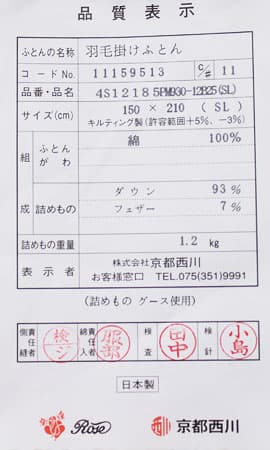 品質表示
ふとんの名称 羽毛掛けふとん
コードNo. 11159513 C/# 11
品番・品名 4S12185PM930-12B25(SL)
サイズ(cm) 150 × 210 (SL)
キルティング製(許容範囲+5%、-3%)
組成 ふとんがわ 綿 100%
詰めもの ダウン 93%
フェザー 7%
詰めもの重量 1.2 kg
表示者 株式会社 京都西川
お客様窓口 TEL.075(351)9991
(詰めもの グース使用)
側縫責任者 綿入責任者 服部 検査 田中 検針 小島
日本製
Rose 西川 京都西川